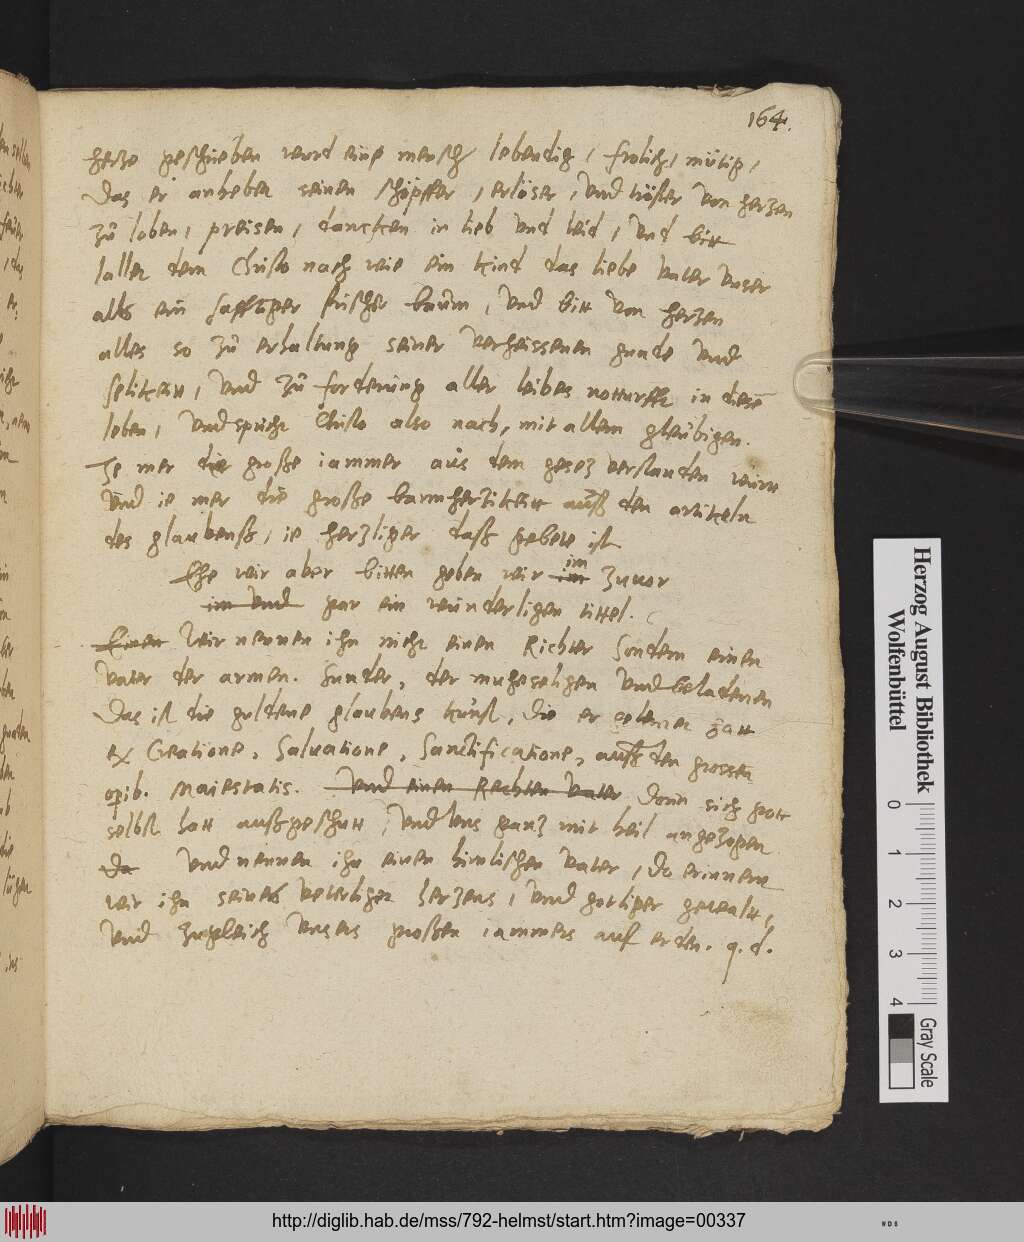 164.
hertze geschrieben wurd eine mensch lebendig, frolich, mütig,
Das er anheben seinen schöpffer, erlöser, und tröster von herzen
zu loben, preisen, dancken in lieb und leid, und bitt
lallen dem Christo nach wie ein kind das liebe vater unser
alls ein safftiger frischer baum, und bitt von herzen
alles so zu erhaltung seiner verheissenen gnade und
selikeitt, und zu forderung aller leibes notturfft in diesē
leben, und spricht Christo also nach, mit allem gleubigen.
Je mer die große iammer aus dem gesez verstanden wirtt
und ie mer die große barmherzikeitt auß den artikeln
des glaubenß, ie herzliger daß gebett ist
Ehe wir aber bitten geben wir im im zuvor
im und gar ein wunderligen tittel.
Einen Wir nennen ihn nicht einen Richter sondern einen
vater der armen. sunder, der muheseligen und beladenen
Das ist die guldene glaubens kunst, die er gelernet hatt
ex Creatione, Salvatione, Sanctificatione, auß den grossen
opib. Maiestatis. und einen Rechten vater Dorin sich gott
selbst hatt außgeschutt, und uns ganz mit heil angezogen
Da und nennen ihn einen himlischen vater, Do erinnern
wir ihn seines veterligen herzens, und gotliger gewaltt,
und zugleich unsers großen iammers auf erden. q. d.
Herzog August Bibliothek
Wolfenbüttel
0 1 2 3 4
Gray Scale
http://diglib.hab.de/mss/792-helmst/start.htm?image=00337